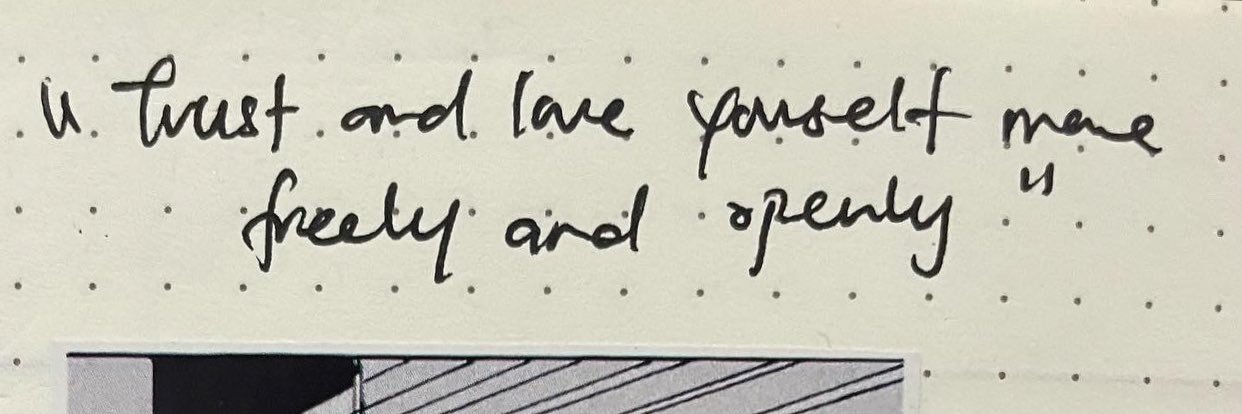 " trust and love yourself more
freely and openly "